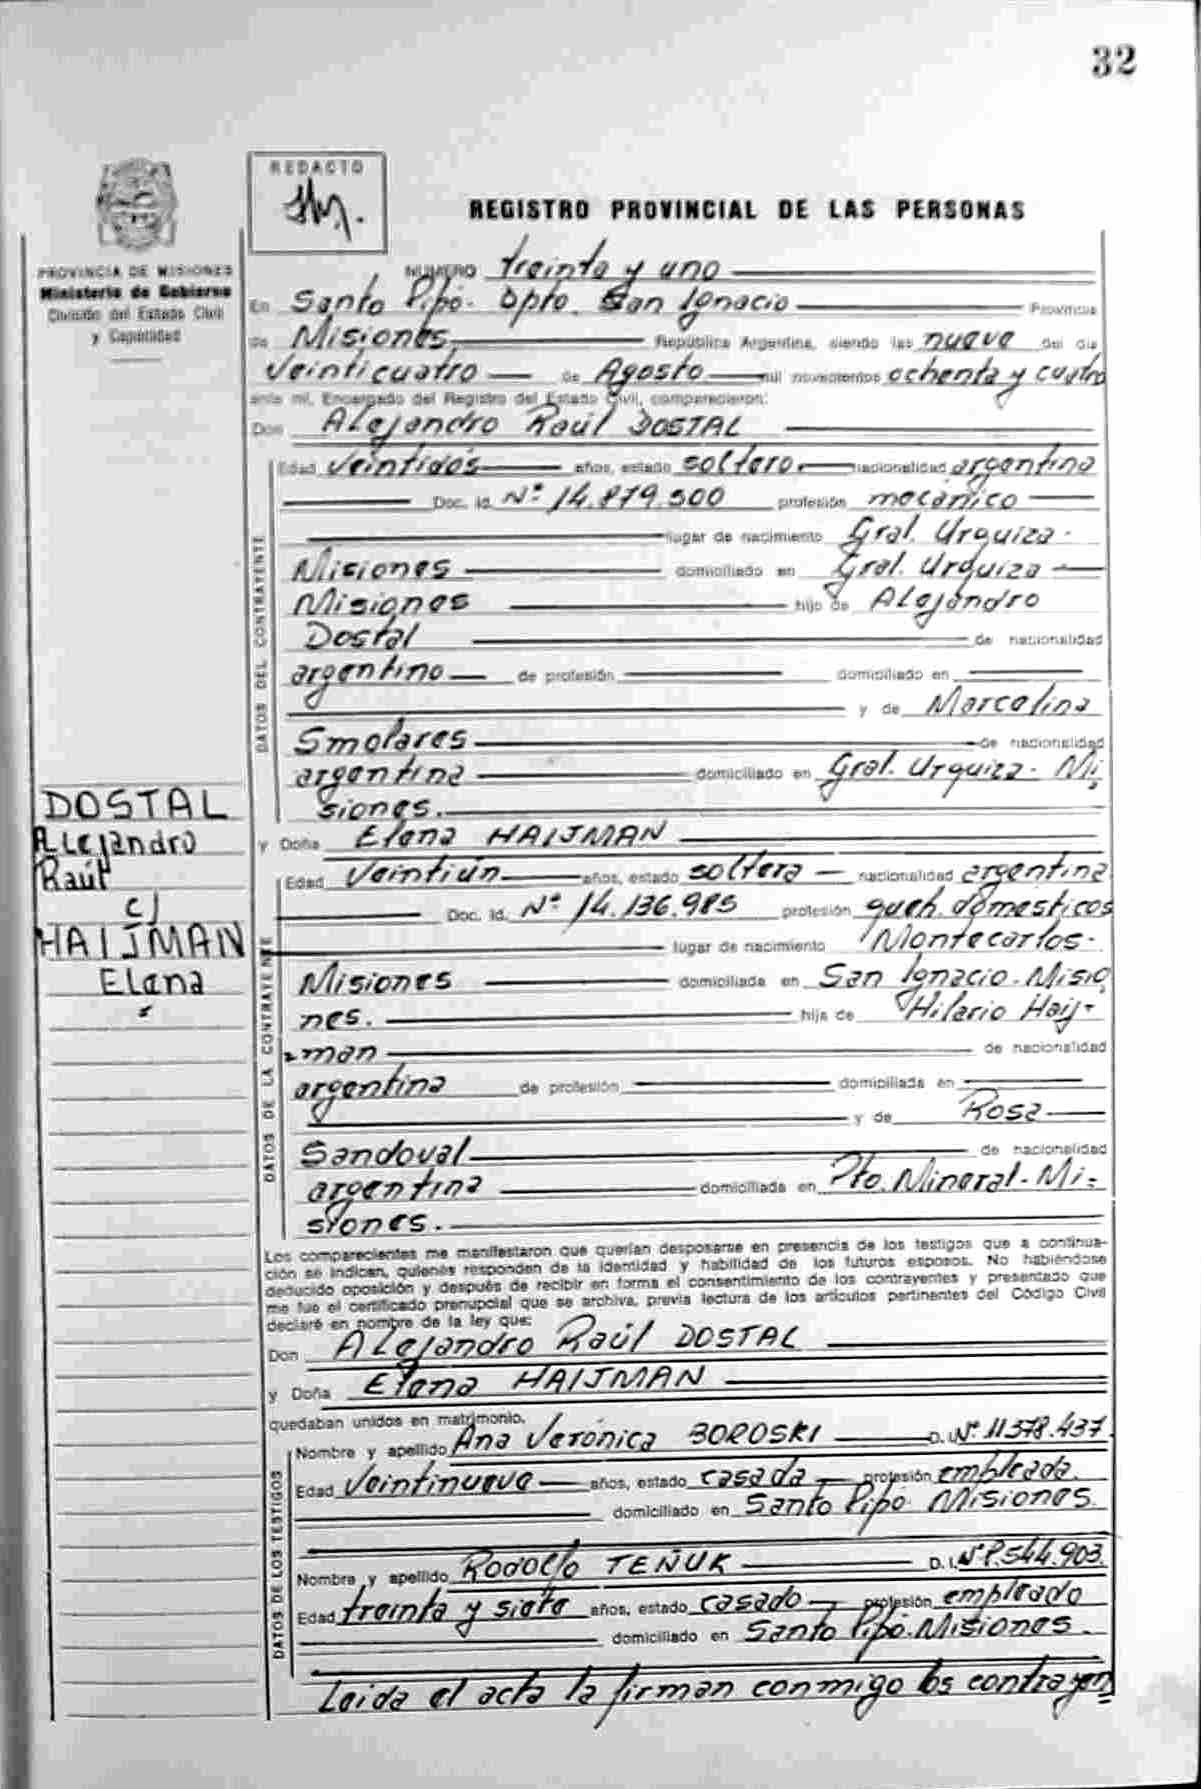 32
REDACTO
REGISTRO PROVINCIAL DE LAS PERSONAS
PROVINCIA DE MISIONES
Ministerio de Gobierno
División del Estado Civil
y Capacidad
NUMERO treinta y uno
En Santo Pipó. Dpto. San Ignacio Provincia
de Misiones. República Argentina, siendo las nueve del día
veinticuatro de Agosto mil novecientos ochenta y cuatro
ante mi, Encargado del Registro del Estado Civil, comparecieron:
Don Alejandro Raúl DOSTAL
DATOS DEL CONTRAYENTE
Edad veintidós años, estado soltero nacionalidad argentina
Doc. Id. Nº 14.879.500 profesión mecánico
lugar de nacimiento Gral. Urquiza.
Misiones domiciliado en Gral. Urquiza
Misiones hijo de Alejandro
Dostal de nacionalidad
argentino de profesión domiciliado en
y de Marcelina
Smolares de nacionalidad
argentina domiciliado en Gral. Urquiza. Mi
siones.
DOSTAL
Alejandro
Raúl
c/
HAIJMAN
Elena
y Doña Elena HAIJMAN
DATOS DE LA CONTRAYENTE
Edad Veintiún años, estado soltera nacionalidad argentina
Doc. Id. Nº 14.136.985 profesión queh. domesticos
lugar de nacimiento Montecarlos.
Misiones domiciliada en San Ignacio. Misio
nes. hija de Hilario Haij-
man de nacionalidad
argentina de profesión domiciliada en
y de Rosa
Sandoval de nacionalidad
argentina domiciliada en Pto. Mineral. Mi-
siones.
Los comparecientes me manifestaron que querían desposarse en presencia de los testigos que a continua-
ción se indican, quienes responden de la identidad y habilidad de los futuros esposos. No habiéndose
deducido oposición y después de recibir en forma el consentimiento de los contrayentes y presentado que
me fue el certificado prenupcial que se archiva, previa lectura de los artículos pertinentes del Código Civil
declaré en nombre de la ley que:
Don Alejandro Raúl DOSTAL
y Doña Elena HAIJMAN
quedaban unidos en matrimonio.
DATOS DE LOS TESTIGOS
Nombre y apellido Ana Verónica BOROSKI D.I. Nº 11.378.437
Edad Veintinueve años, estado casada profesión empleada.
domiciliado en Santo Pipó Misiones.
Nombre y apellido Rodolfo TEÑUK D.I. Nº 8.544.903
Edad treinta y siete años, estado casado profesión empleado
domiciliado en Santo Pipó. Misiones.
Leida el acta la firman conmigo los contrayen